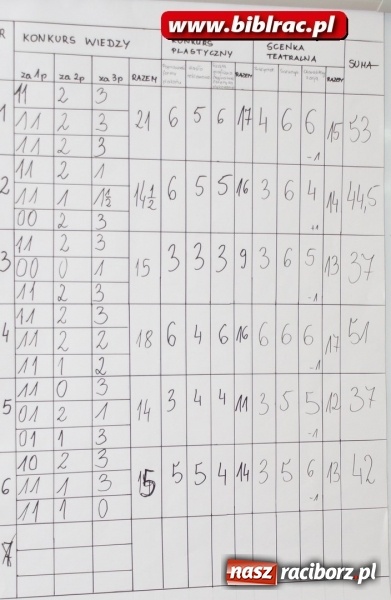 www.biblrac.pl
R KONKURS WIEDZY KONKURS PLASTYCZNY SCENKA TEATRALNA SUMA
za 1p za 2p za 3p RAZEM RAZEM RAZEM
11 2 3
1 11 2 3 21 6 5 6 17 4 6 6 -1 15 53
11 2 3
11 2 1
2 11 1 1½ 14½ 6 5 5 16 3 6 4 +1 14 44,5
00 2 3
11 2 3
3 00 0 1 15 3 3 3 9 3 6 5 -1 13 37
11 2 3
11 2 3
4 11 2 2 18 6 4 6 16 6 6 6 -1 17 51
11 1 2
11 0 3
5 01 2 1 14 3 4 4 11 3 5 5 -1 12 37
01 1 3
10 2 3
6 11 1 3 15 5 5 4 14 3 5 6 -1 13 42
11 1 0
7
nasz raciborz.pl